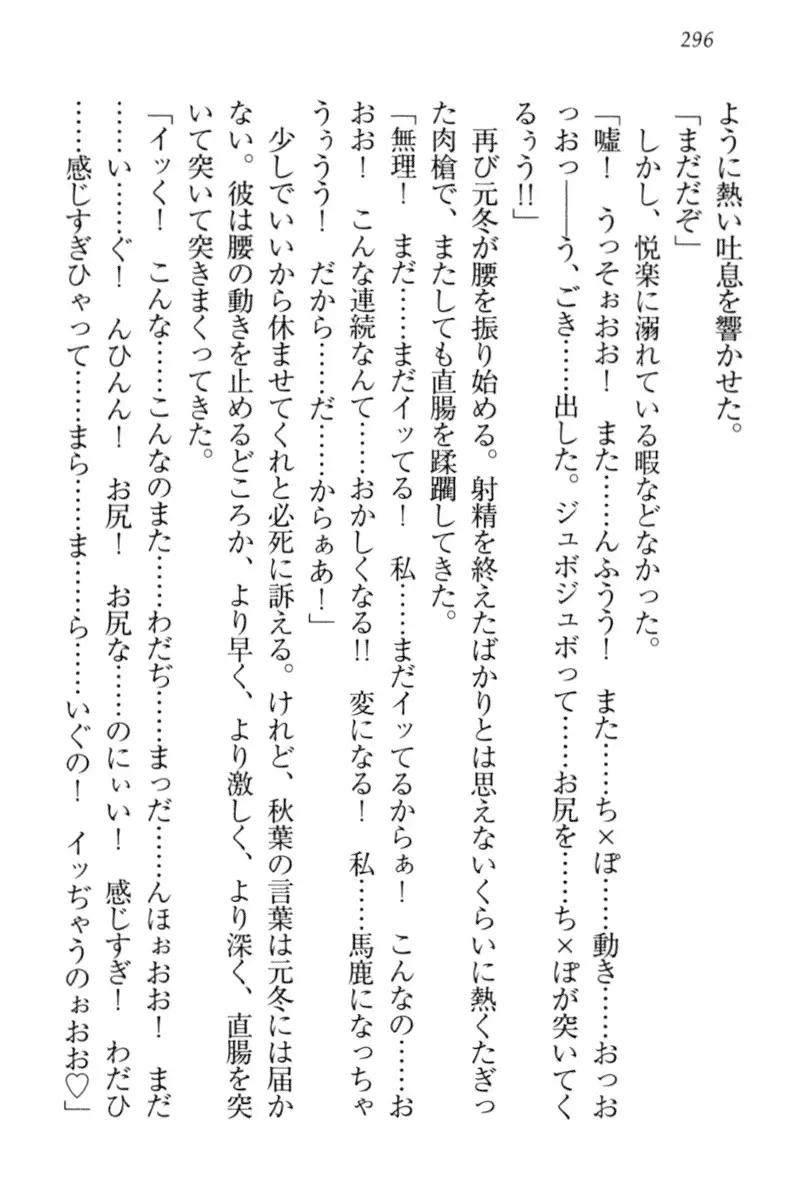 296
ように熱い吐息を響かせた。
「まだだぞ」
しかし、悦楽に溺れている暇などなかった。
「嘘！　うっそぉおお！　また……んふうう！　また……ち×ぽ……動き……おっお
っおっ――う、ごき……出した。ジュボジュボって……お尻を……ち×ぽが突いてく
るぅう!!」
再び元冬が腰を振り始める。射精を終えたばかりとは思えないくらいに熱くたぎっ
た肉槍で、またしても直腸を蹂躙してきた。
「無理！　まだ……まだイッてる！　私……まだイッてるからぁ！　こんなの……お
おお！　こんな連続なんて……おかしくなる!!　変になる！　私……馬鹿になっちゃ
うぅうう！　だから……だ……からぁあ！」
少しでいいから休ませてくれと必死に訴える。けれど、秋葉の言葉は元冬には届か
ない。彼は腰の動きを止めるどころか、より早く、より激しく、より深く、直腸を突
いて突いて突きまくってきた。
「イッく！　こんな……こんなのまた……わだぢ……まっだ……んほぉおお！　まだ
……い……ぐ！　んひんん！　お尻！　お尻な……のにぃい！　感じすぎ！　わだひ
……感じすぎひゃって……まら……ま……ら……いぐの！　イッぢゃうのぉおお♡」